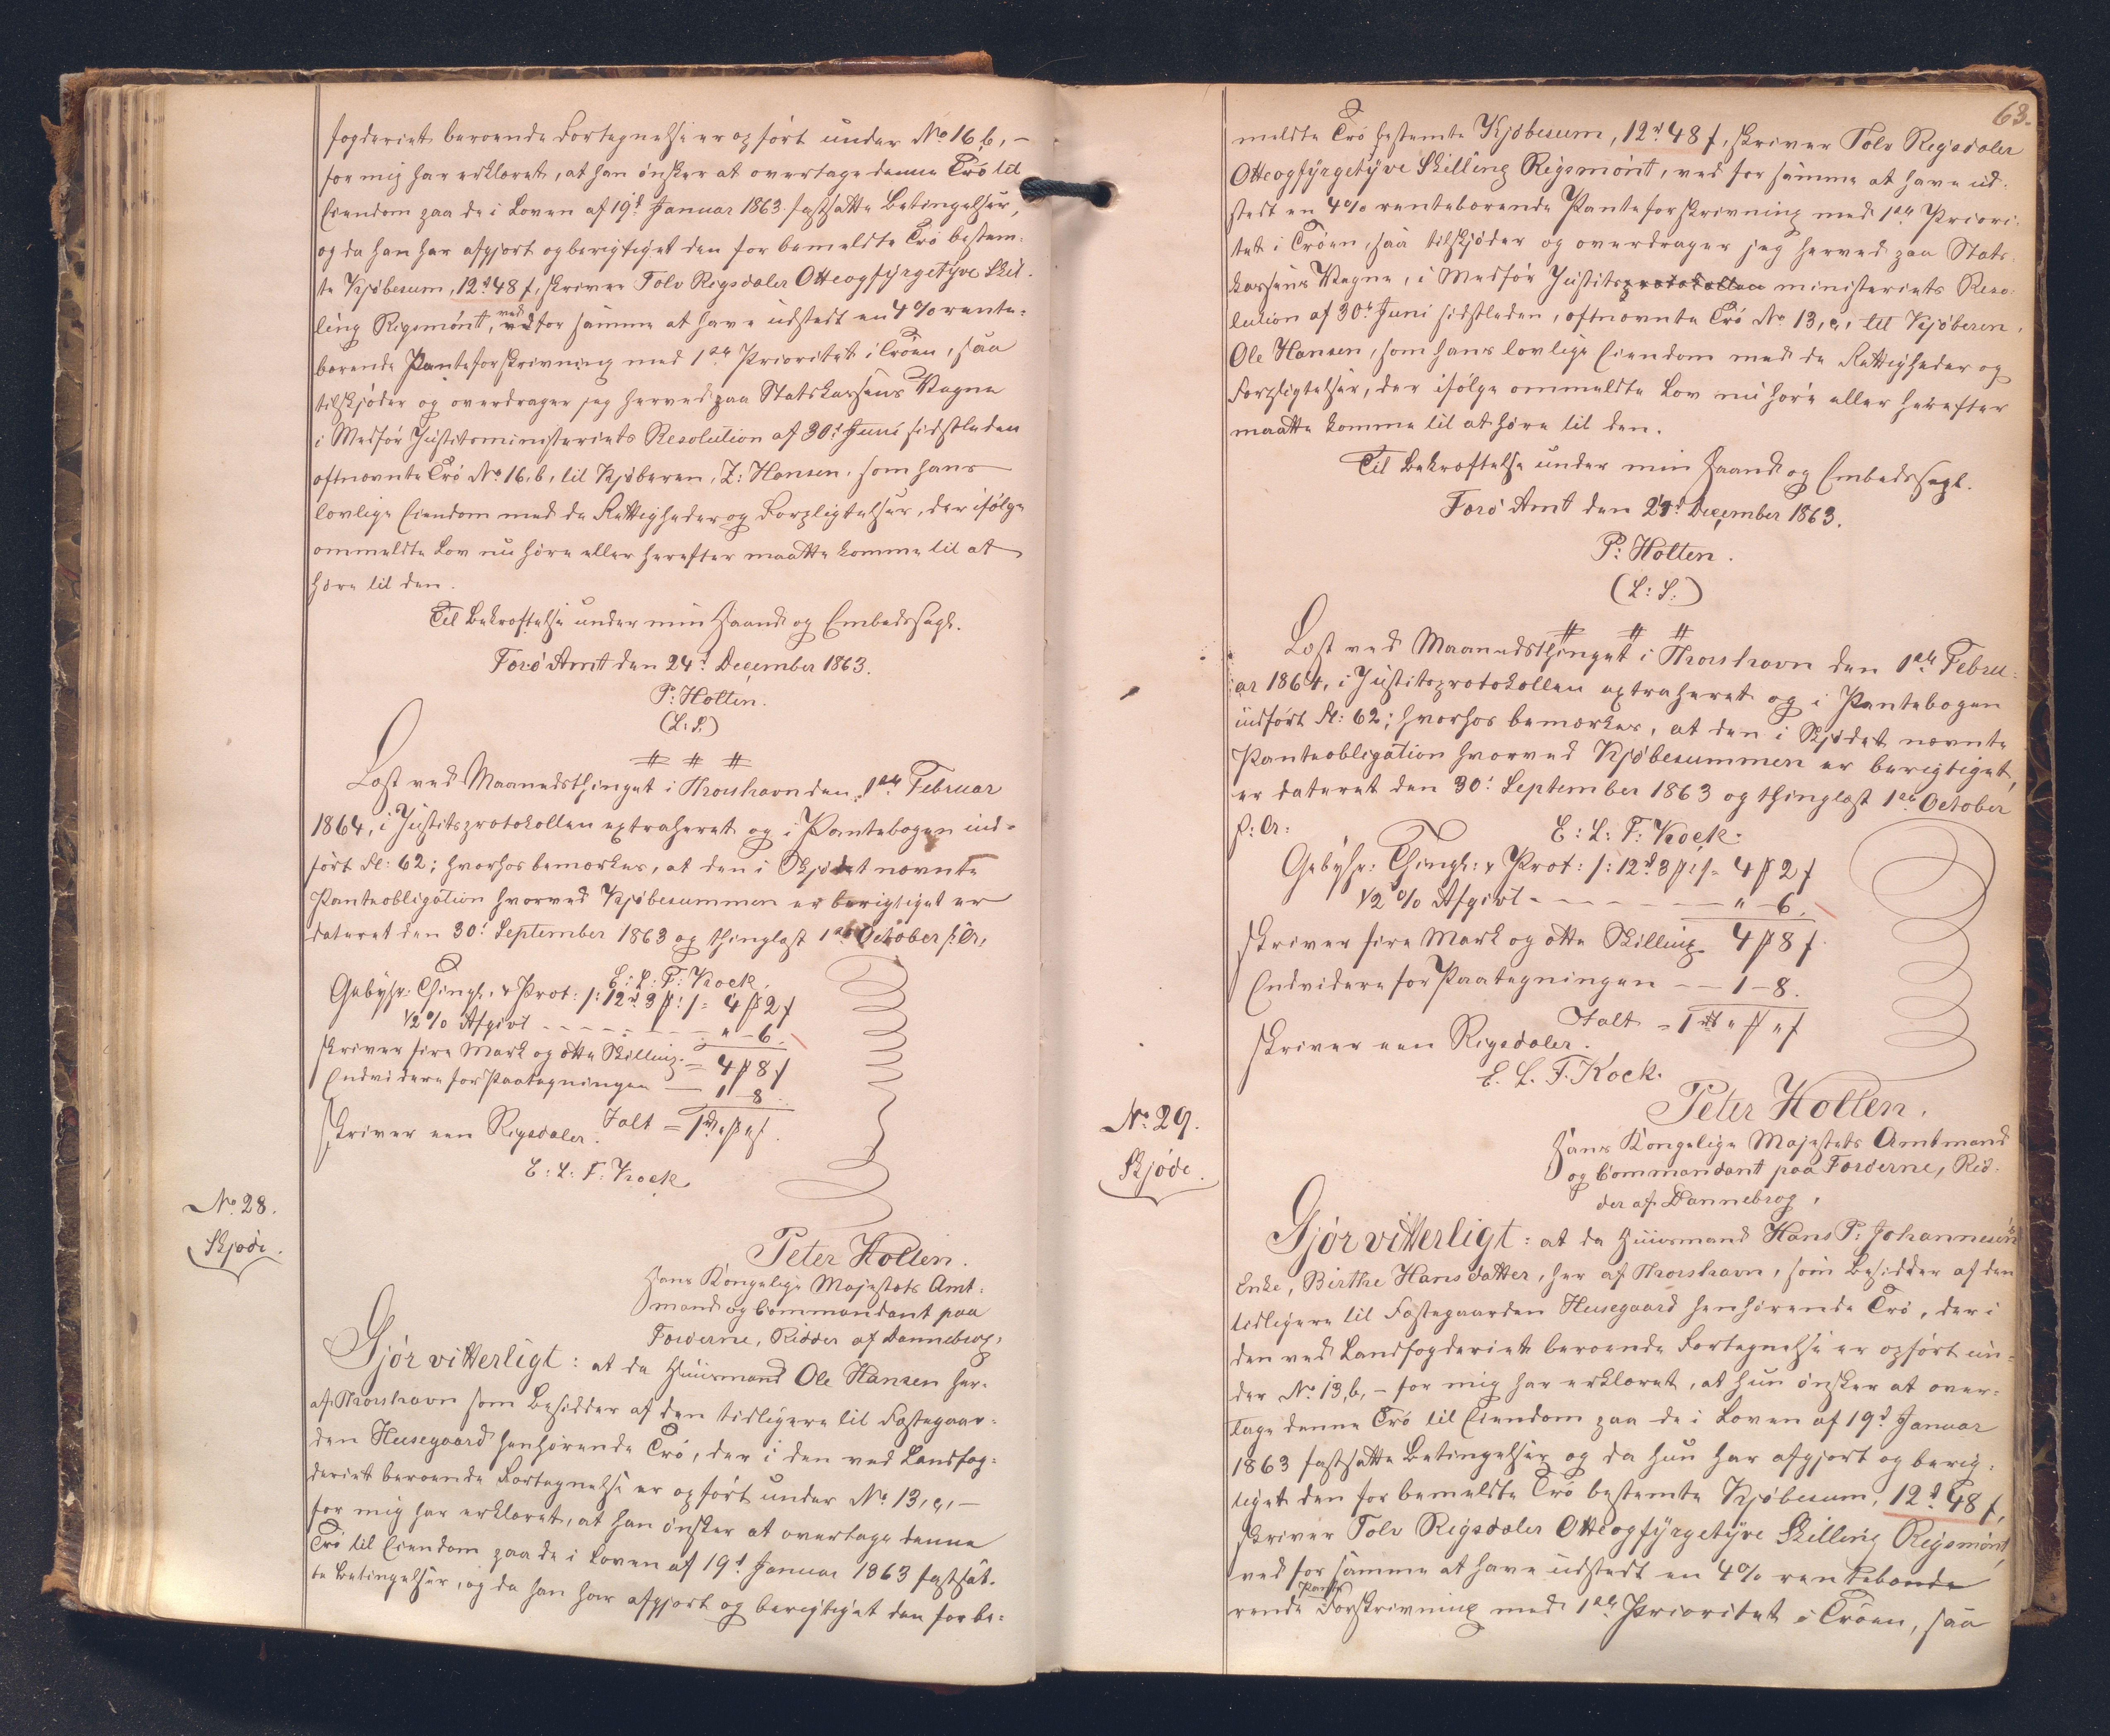 fogderiet beroende Fortegnelse er opført under No 16,b, –
for mig har erklæret, at han ønsker at overtage denne Trø til
Eiendom paa de i Loven af 19d Januar 1863 fastsatte Betingelser,
og da han har afgjort og berigtiget den for bemeldte Trø bestem-
te Kjøbesum, 12rd 48 s, skriver Tolv Rigsdaler Otteogfyrgetyve Skil-
ling Rigsmønt, ved for samme at have udstedt en 4% rente-
bærende Panteforskrivning med 1ste Prioritet i Trøen, saa
tilskjøder og overdrager jeg herved paa Statskassens Vegne
i Medfør Justitsministeriets Resolution af 30d Juni sidstleden
oftnævnte Trø No 16,b, til Kjøberen, Z: Hansen, som hans
lovlige Eiendom med de Rettigheder og Forpligtelser, der ifølge
ommeldte Lov nu høre eller herefter maatte komme til at
høre til den.
Til Bekræftelse under min Haand og Embedssegl.
Færø Amt den 24d December 1863.
P: Holten.
(L: S.)
# # #
Læst ved Maanedsthinget i Thorshavn den 1ste Februar
1864, i Justitsprotokollen extraheret og i Pantebogen ind-
ført Fl: 62; hvorhos bemærkes, at den i Skjødet nævnte
Panteobligation hvorved Kjøbesummen er berigtiget er
dateret den 30d September 1863 og thinglæst 1ste October f: Ar,
E: L: F: Kock.
Gebyhr: Thingl: & Prot: /: 12rd 3 ß :/ = 4 ß 2 s
1/2 % Afgivt - - - - - - - „ – 6.
skriver fire Mark og otte Skilling = 4 ß 8 s
Endvidere for Paategningen — 1 – 8.
Ialt = 1rd „ ß „ s.
skriver een Rigsdaler.
E: L: F: Kock
No 28.
Skjøde.
Peter Holten.
Hans Kongelige Majestæts Amt-
mand og Commandant paa
Færøerne, Ridder af Dannebrog,
Gjør vitterligt: at da Huusmand Ole Hansen her-
af Thorshavn som Besidder af den tidligere til Fæstegaar-
den Husegaard henhørende Trø, der i den ved Landfog-
deriet beroende Fortegnelse er opført under No 13, c, –
for mig har erklæret, at han ønsker at overtage denne
Trø til Eiendom paa de i Loven af 19d Januar 1863 fastsat-
te Betingelser, og da han har afgjort og berigtiget den for be-
63.
meldte Trø bestemte Kjøbesum, 12rd 48 s, skriver Tolv Rigsdaler
Otteogfyrgetyve Skilling Rigsmønt, ved for samme at have ud-
stedt en 4% rentebærende Panteforskrivning med 1ste Priori-
tet i Trøen, saa tilskjøder og overdrager jeg herved paa Stats-
kassens Vegne, i Medfør Justitsprotokollen ministeriets Reso-
lution af 30d Juni sidstleden, oftnævnte Trø No 13, c, til Kjøberen,
Ole Hansen, som hans lovlige Eiendom med de Rettigheder og
Forpligtelser, der ifølge ommeldte Lov nu høre eller herefter
maatte komme til at høre til den.
Til Bekræftelse under min Haand og Embedssegl.
Færø Amt den 24d December 1863.
P: Holten.
(L: S.)
# # #
Læst ved Maanedsthinget i Thorshavn den 1ste Febru-
ar 1864, i Justitsprotokollen extraheret og i Pantebogen
indført Fl: 62; hvorhos bemærkes, at den i Skjødet nævnte
Panteobligation hvorved Kjøbesummen er berigtiget,
er dateret den 30d September 1863 og thinglæst 1ste October
f: Ar: E: L: F: Kock.
Gebyhr: Thingl: & Prot: /: 12rd 3 ß :/ = 4 ß 2 s
1/2 % Afgivt - - - - - - „ – 6.
skriver fire Mark og otte Skilling 4 ß 8 s.
Endvidere for Paategningen — 1 – 8.
Ialt = 1rd „ ß „ s
skriver een Rigsdaler.
E. L. F. Kock.
No 29.
Skjøde.
Peter Holten.
Hans Kongelige Majestæts Amtmand
og Commandant paa Færøerne, Rid-
der af Dannebrog,
Gjør vitterligt: at da Huusmand Hans P: Johannesens
Enke, Birthe Hansdatter, her af Thorshavn, som Besidder af den
tidligere til Fæstegaarden Husegaard henhørende Trø, der i
den ved Landfogderiet beroende Fortegnelse er opført un-
der No 13,b, – for mig har erklæret, at hun ønsker at over-
tage denne Trø til Eiendom paa de i Loven af 19d Januar
1863 fastsatte Betingelser og da hun har afgjort og berig-
tiget den for bemeldte Trø bestemte Kjøbesum, 12rd 48 s,
skriver Tolv Rigsdaler Otteogfyrgetyve Skilling Rigsmønt,
ved for samme at have udstedt en 4% rentebende
rende Pante Forskrivning med 1ste Prioritet i Trøen, saa